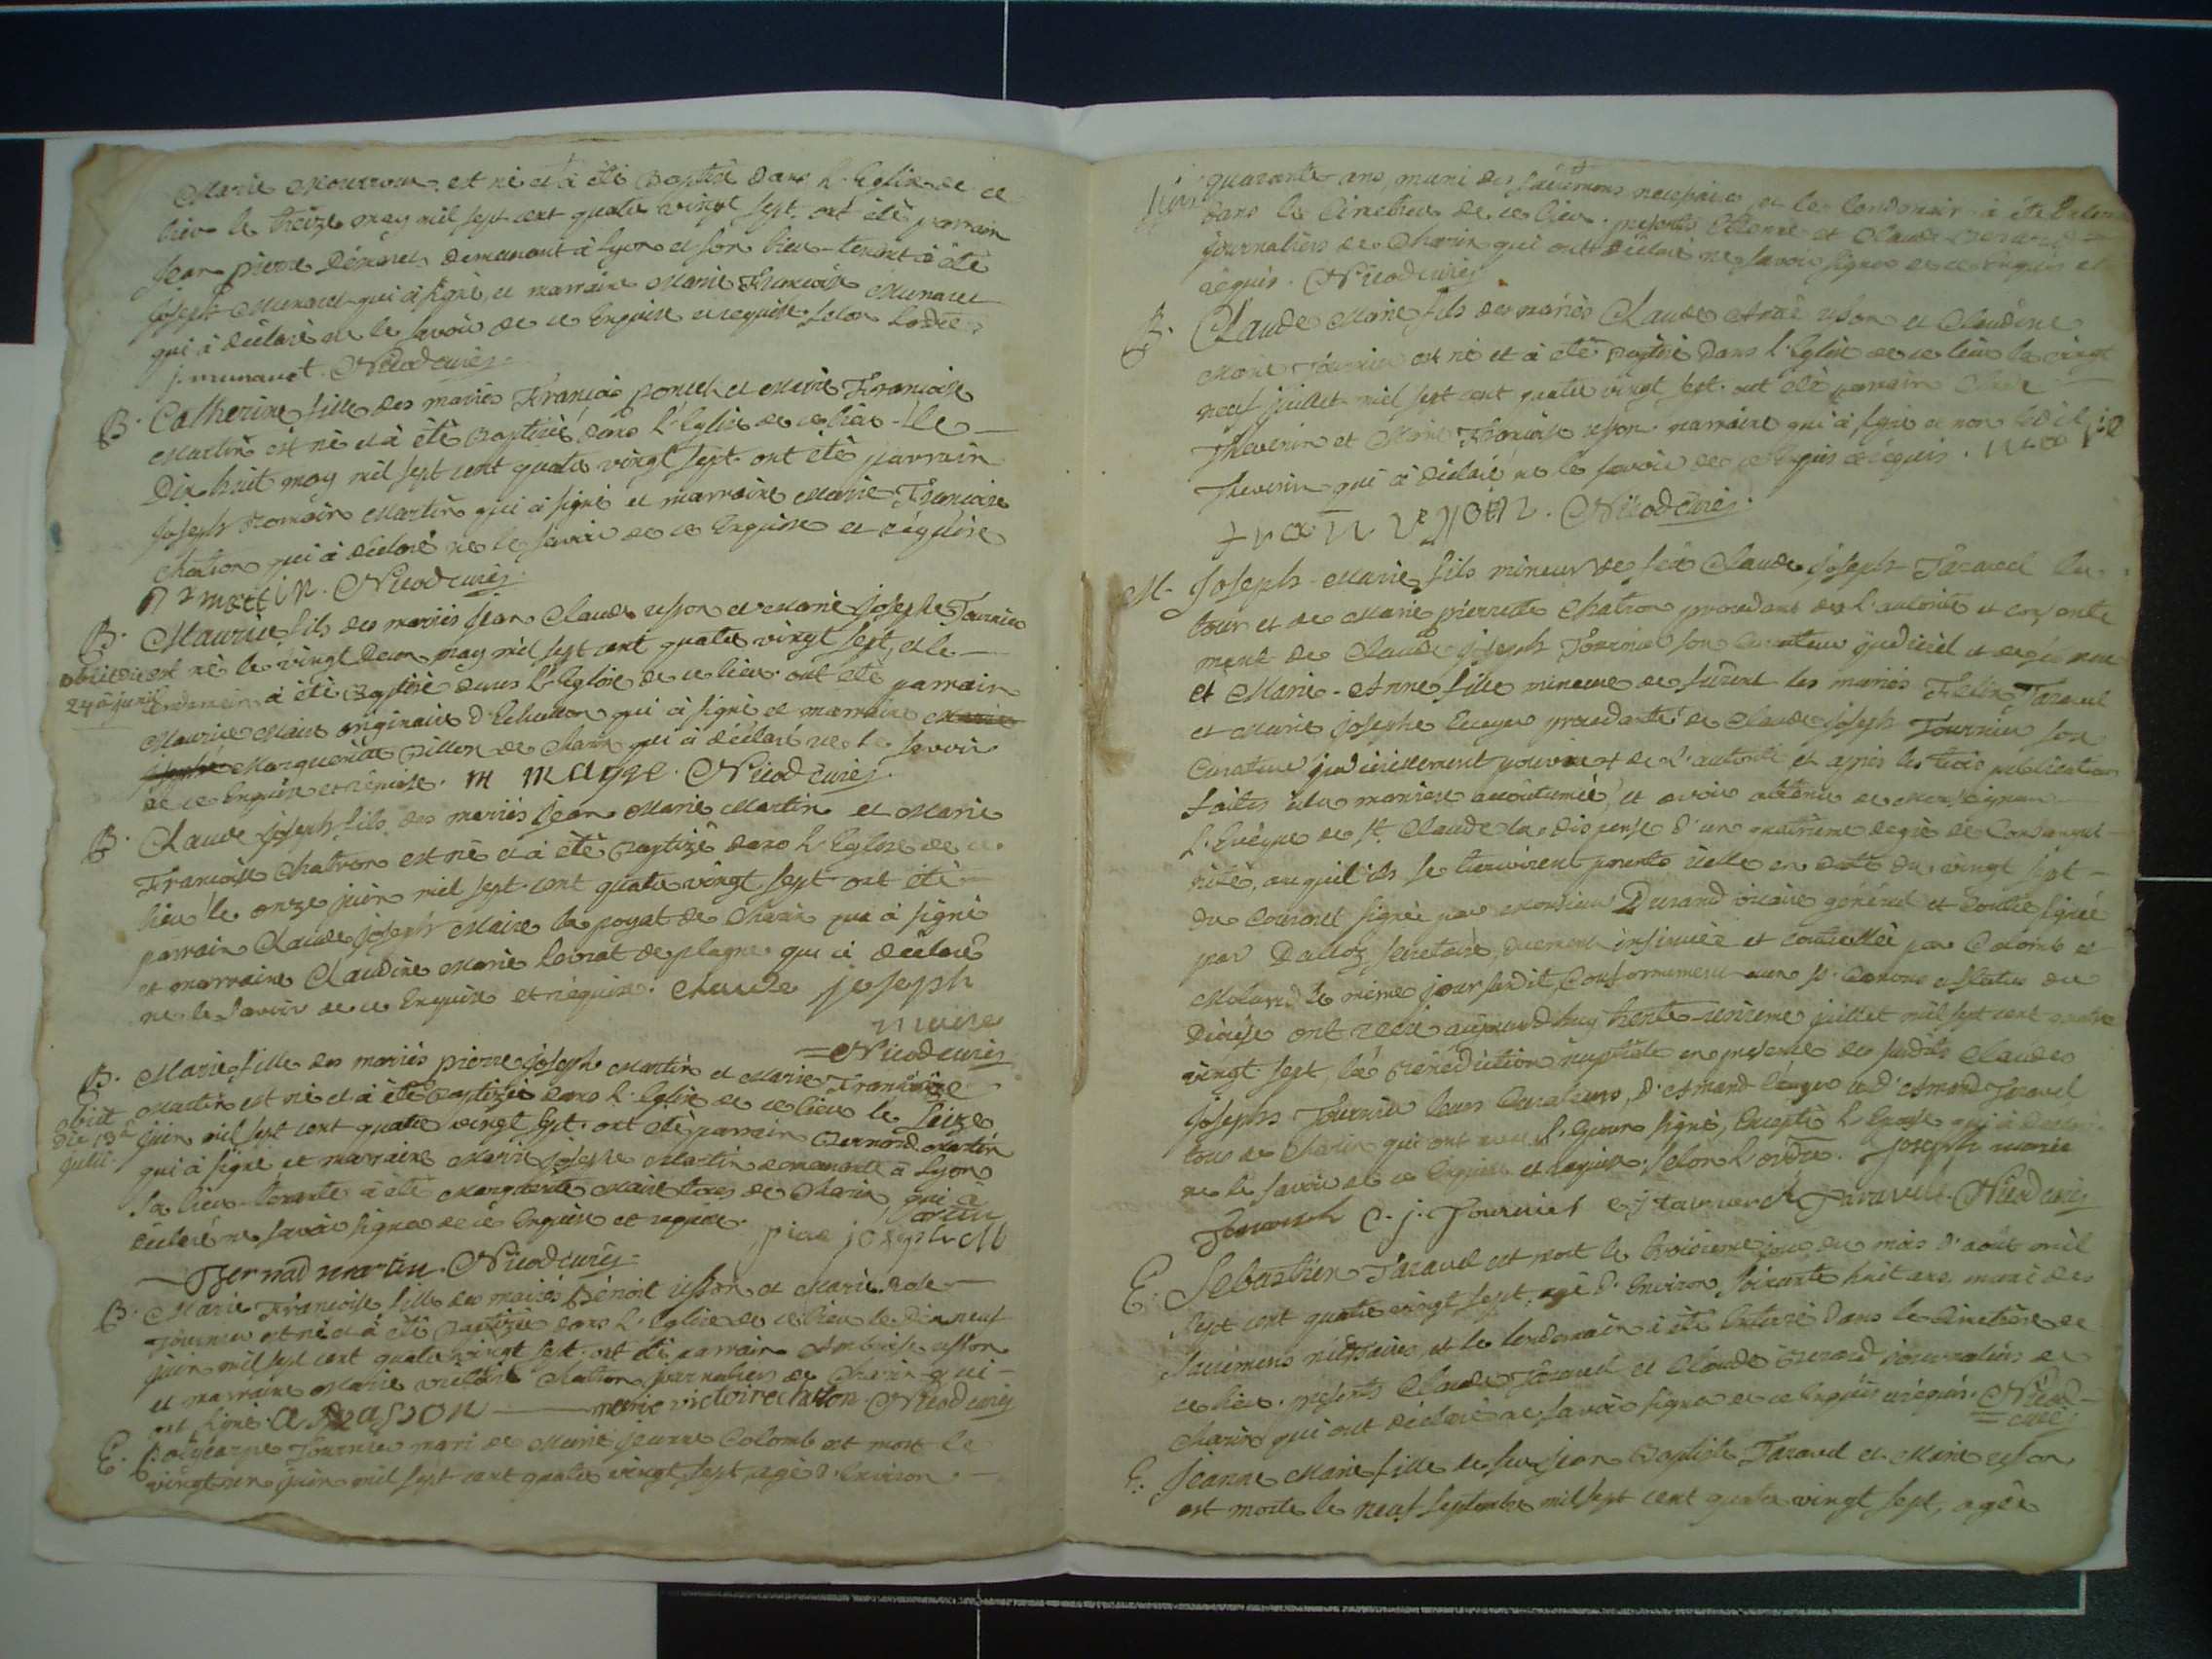 Marie et né et à été Baptisé dans L'Eglise de ce
lieu le treize may mil sept cent quatre vingt sept. ont été parrain
Jean pierre demeurant à Lyon et son lieu-tenant à été
Joseph Munaret qui à signé, et marraine Marie Françoise Munaret
qui à déclaré ne le savoir de ce Enquise et requise. selon Lordre
j. munaret. Nicod curé
B. Catherine fille des mariés François poncet et Marie Françoise
Martin est né et à été Baptisée dans L'Eglise de ce lieu le
Dix huit may mil sept cent quatre vingt sept. ont été parrain
Joseph Romain Martin qui à signé et marraine Marie Françoise
Chatron qui à déclaré ne le savoir de ce Enquise et requise
martin. Nicod curé
B. Maurice fils des mariés Jean Claude usson et Marie Josephe Tournier
obiit die est né le vingt deux may mil sept cent quatre vingt sept, et le
24 à junii lendemain à été Baptisé dans L'Eglise de ce lieu. ont été parrain
Maurice Maire originaire d'Echallon qui à signé et marraine Marie
Josephe Marguerite Billion de Charix qui à déclaré ne le savoir
de ce Enquise et requise. m mayre. Nicod curé
B. Claude Joseph fils des mariés Jean Marie Martin et Marie
Françoise Chatron est né et à été Baptizé dans L'Eglise de ce
lieu le onze juin mil sept cent quatre vingt sept ont été
parrain Claude Joseph Maire la poyat de Charix qui à signé
et marraine Claudine Marie de plagne qui à déclaré
ne le savoir de ce Enquise et requise. claude joseph
maire
Nicod curé
B. Marie fille des mariés pierre joseph Martin et Marie Françoise
obiit Martin est né et à été Baptizée dans L'Eglise de ce lieu le seize
die 13a juin mil sept cent quatre vingt sept. ont été parrain Bernard Martin
julii. qui à signé et marraine Marie Josephe Martin demeurante à Lyon
sa lieu-tenante à été Marguerite Maire tous de Charix qui à
déclaré ne savoir signer de ce Enquise et requise. piere joseph M
artin
Bernad martin. Nicod curé
B. Marie Françoise fille des mariés Benoit usson et Marie Rose
Tournier est né et à été Baptizée dans L'Eglise de ce lieu le dix neuf
juin mil sept cent quatre vingt sept. ont été parrain Ambroise usson
et marraine Marie victoire Chatron journaliers de Charix qui
ont signé. marie victoire chatton. Nicod curé
E. Policarpe Tournier mari de Marie jeanne Colomb est mort le
vingt un juin mil sept cent quatre vingt sept, agé d'Environ
quarante ans, muni des sacremens necessaires, et le lendemain à été Enterré
dans le Cimetiere de ce lieu. presents Etienne et Claude Berard
journaliers de Charix qui ont déclaré ne savoir signer de ce enquis et
requis. Nicod curé
B. Claude Marie fils des mariés Claude André usson et Claudine
Marie Tournier est né et à été Baptisé dans L'Eglise de ce lieu le vingt
neuf juillet mil sept cent quatre vingt sept. ont été parrain Claude
Thevenin et Marie Françoise usson marraine qui à signé et non ledit
Thevenin qui à déclaré ne le savoir de ce Enquis et requis.
Nicod curé
M. Joseph-Marie fils mineur de feu Claude Joseph Taravel
et de Marie pierrette Chatron procedant de L'autorité et consente
ment de Claude Joseph Tournier son Curateur judiciel
et Marie-Anne fille mineure de furent les mariés Felix Taravel
et Marie Josephe procedante de Claude Joseph Tournier son
Curateur judiciellement pourvu et de L'autorité et après les trois publications
faites à la maniere accoutumée, et avoir obtenu de Monseigneur
L'Evêque de St. Claude la dispense d'un quatrieme degré de Consangui
nité, auquel ils se trouvoient en datte du vingt sept
du Courant signée par Monsieur Durand vicaire général et
par Dalloz secretaire, duement insinuée et controllée par Colomb
le même jour susdit, Conformement aux St. Canons et statuts du
Diocèse ont reçu aujourd'huy trente-unieme juillet mil sept cent quatre
vingt sept, la Bénédiction nuptiale en presence des susdits Claude
Joseph Tournier leurs Curateurs, d'Amand et d'Amand Taravel
tous de Charix qui ont avec L'Epoux signé, Excepté L'Epouse qui à déclaré
ne le savoir de ce Enquise et requise. selon L'ordre. joseph marie
C. j. Tournier Taravel. Nicod curé
E. Sebastien Taravel est mort le troisieme jour du mois d'août mil
sept cent quatre vingt sept, agé d'Environ soixante huit ans, muni des
sacremens nécessaires et le lendemain à été Enterré dans le Cimetière de
ce lieu. présents Claude Taravel et Claude Berard journaliers de
Charix qui ont déclaré ne savoir signer de ce Enquis et requis. Nicod
curé
E. Jeanne Marie fille de feu Jean Baptiste Taravel et Marie usson
est morte le neuf septembre mil sept cent quatre vingt sept, agée